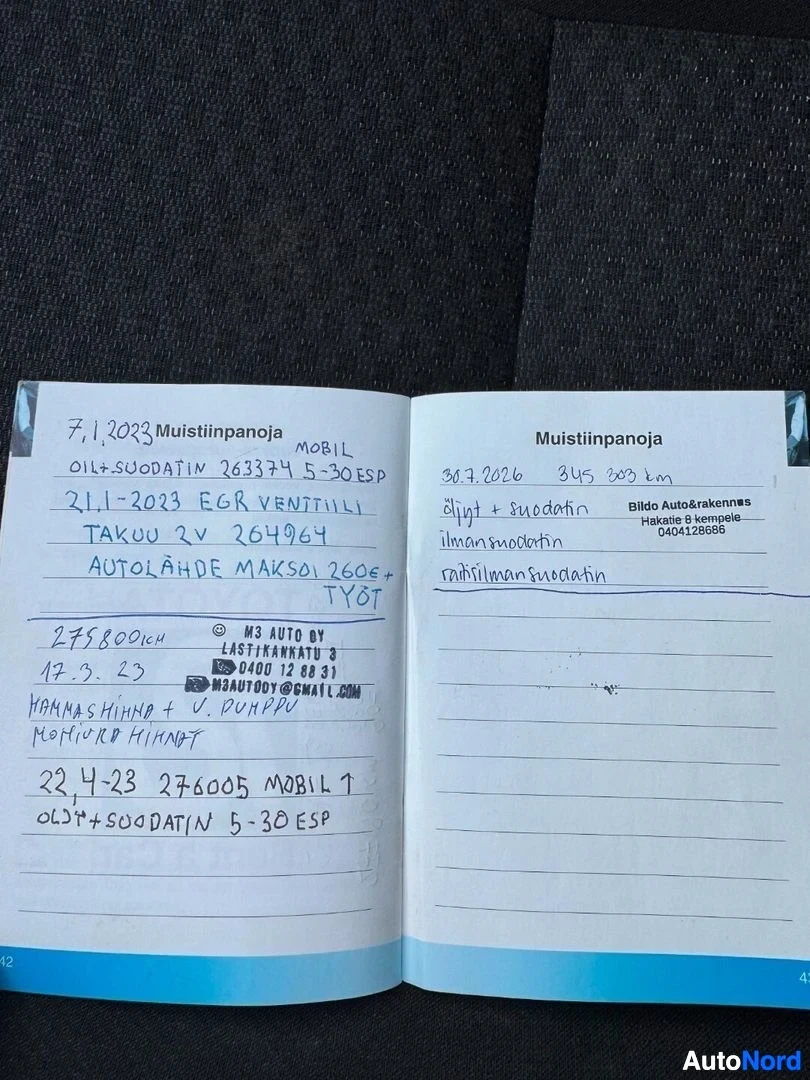 7.1.2023 Muistiinpanoja
MOBIL
OIL+SUODATIN 263374 5-30 ESP
21.1-2023 EGR VENTTIILI
TAKUU 2V 264964
AUTOLÄHDE MAKSOI 260€+
TYÖT
275800KM
17.3.23
M3 AUTO OY
LASTIKANKATU 3
0400 12 88 31
M3AUTOOY@GMAIL.COM
HAMMASHIHNA + V. PUMPPU
MONIURA HIHNAT
22,4-23 276005 MOBIL ↑
OLJY+SUODATIN 5-30 ESP
42
Muistiinpanoja
30.7.2026 345 303 km
öljyt + suodatin
ilmansuodatin
raitisilmansuodatin
Bildo Auto&rakennus
Hakatie 8 kempele
0404128686
AutoNord